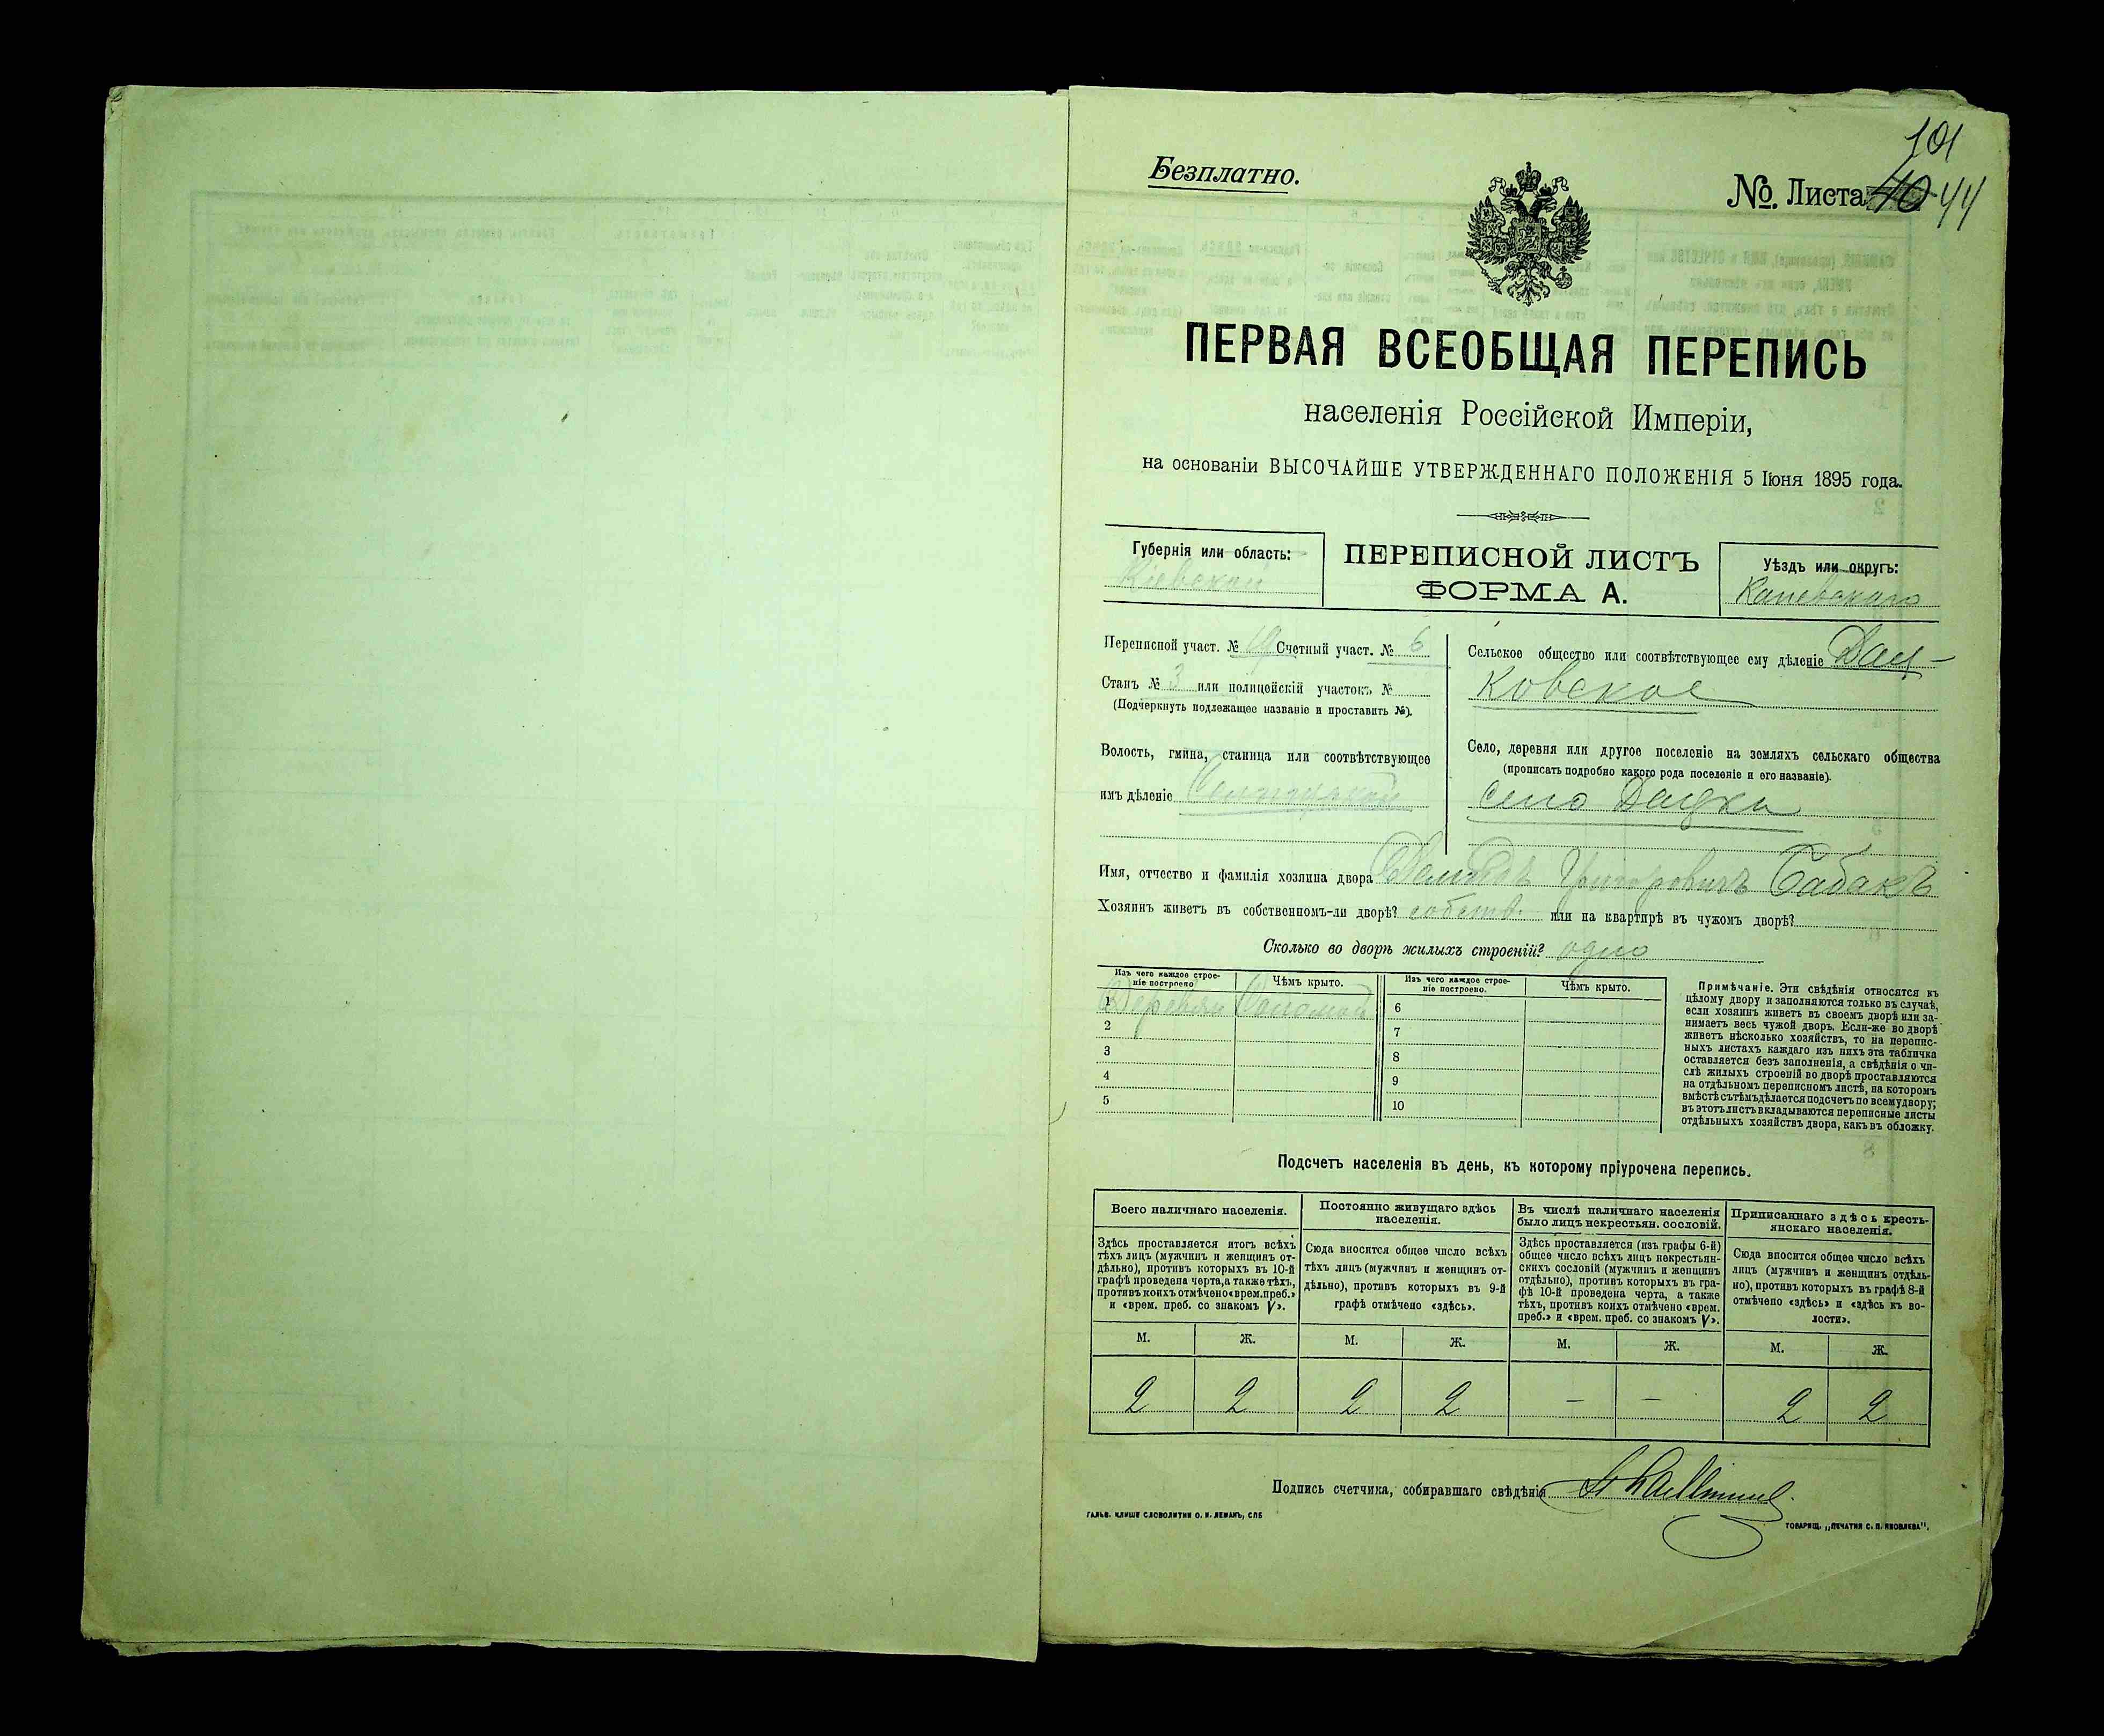 101
Безплатно.
№. Листа 40 44
ПЕРВАЯ ВСЕОБЩАЯ ПЕРЕПИСЬ
населенія Россійской Имперіи,
на основаніи ВЫСОЧАЙШЕ УТВЕРЖДЕННАГО ПОЛОЖЕНІЯ 5 Іюня 1895 года.
Губернія или область:
Кіевской
ПЕРЕПИСНОЙ ЛИСТЪ
ФОРМА А.
Уѣздъ или округъ:
Каневскаго
Переписной участ. № 19 Счетный участ. № 6
Станъ № 3 или полицейскій участокъ №
(Подчеркнуть подлежащее названіе и проставить №).
Волость, гмина, станица или соотвѣтствующее
имъ дѣленіе
Сельское общество или соотвѣтствующее ему дѣленіе Дац-
ковское
Село, деревня или другое поселеніе на земляхъ сельскаго общества
(прописать подробно какого рода поселеніе и его названіе).
село Дацки
Имя, отчество и фамилія хозяина двора Григоровичъ Бабакъ
Хозяинъ живетъ въ собственномъ-ли дворѣ? собств. или на квартирѣ въ чужомъ дворѣ?
Сколько во дворѣ жилыхъ строеній? одно
Изъ чего каждое строе-
ніе построено
Чѣмъ крыто.
Изъ чего каждое строе-
ніе построено.
Чѣмъ крыто.
1 Деревян Соломой
2
3
4
5
6
7
8
9
10
Примѣчаніе. Эти свѣдѣнія относятся къ
цѣлому двору и заполняются только въ случаѣ,
если хозяинъ живетъ въ своемъ дворѣ или за-
нимаетъ весь чужой дворъ. Если-же во дворѣ
живетъ нѣсколько хозяйствъ, то на перепис-
ныхъ листахъ каждаго изъ нихъ эта табличка
оставляется безъ заполненія, а свѣдѣнія о чи-
слѣ жилыхъ строеній во дворѣ проставляются
на отдѣльномъ переписномъ листѣ, на которомъ
вмѣстѣ съ тѣмъ дѣлается подсчетъ по всему двору;
въ этотъ листъ вкладываются переписные листы
отдѣльныхъ хозяйствъ двора, какъ въ обложку.
Подсчетъ населенія въ день, къ которому пріурочена перепись.
Всего наличнаго населенія.
Здѣсь проставляется итогъ всѣхъ
тѣхъ лицъ (мужчинъ и женщинъ от-
дѣльно), противъ которыхъ въ 10-й
графѣ проведена черта, а также тѣхъ,
противъ коихъ отмѣчено «врем. преб.»
и «врем. преб. со знакомъ V».
Постоянно живущаго здѣсь
населенія.
Сюда вносится общее число всѣхъ
тѣхъ лицъ (мужчинъ и женщинъ от-
дѣльно), противъ которыхъ въ 9-й
графѣ отмѣчено «здѣсь».
Въ числѣ наличнаго населенія
было лицъ некрестьян. сословій.
Здѣсь проставляется (изъ графы 6-й)
общее число всѣхъ лицъ некрестьян-
скихъ сословій (мужчинъ и женщинъ
отдѣльно), противъ которыхъ въ гра-
фѣ 10-й проведена черта, а также
тѣхъ, противъ коихъ отмѣчено «врем.
преб.» и «врем. преб. со знакомъ V».
Приписаннаго здѣсь кресть-
янскаго населенія.
Сюда вносится общее число всѣхъ
лицъ (мужчинъ и женщинъ отдѣль-
но), противъ которыхъ въ графѣ 8-й
отмѣчено «здѣсь» и «здѣсь къ во-
лости».
М. Ж. М. Ж. М. Ж. М. Ж.
2 2 2 2 – – 2 2
Подпись счетчика, собиравшаго свѣдѣнія
ГАЛЬВ. КЛИШЕ СЛОВОЛИТНИ О. И. ЛЕМАНЪ, СПБ
ТОВАРИЩ. „ПЕЧАТНЯ С. П. ЯКОВЛЕВА“.